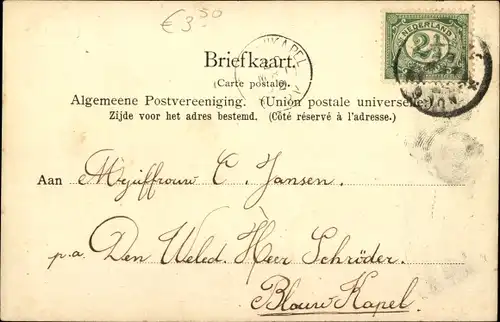 € 3.50
NEDERLAND
2½
Briefkaart.
(Carte postale).
Algemeene Postvereeniging. (Union postale universelle)
Zijde voor het adres bestemd. (Côté réservé à l'adresse.)
Aan Mejuffrouw C. Jansen.
p.a. Den Weled. Heer Schröder.
Blauw Kapel.